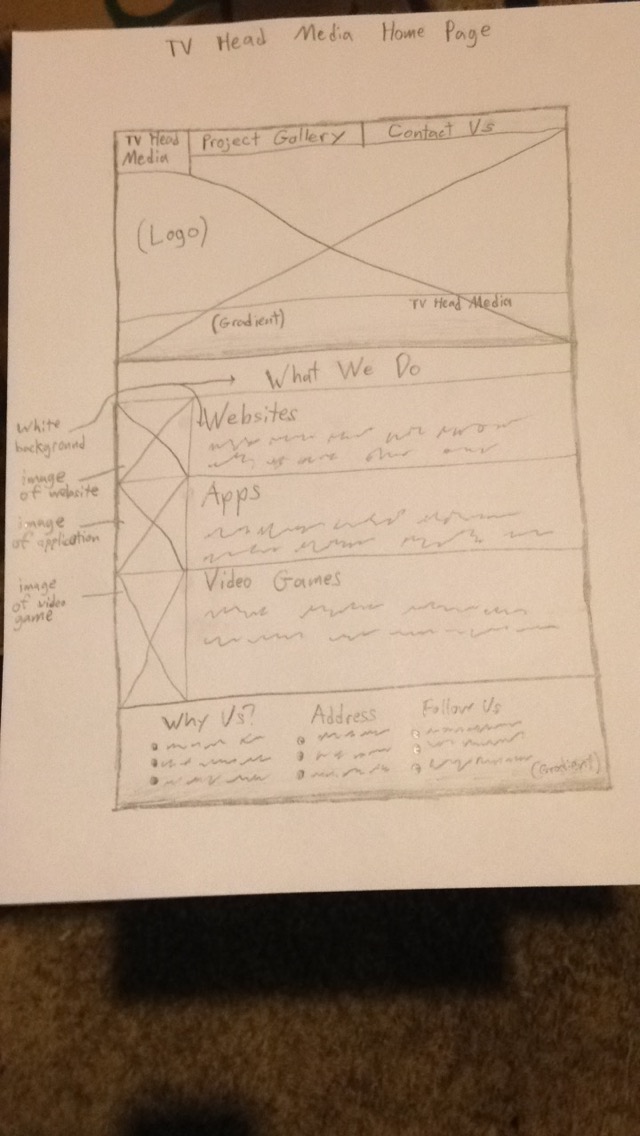 TV Head Media Home Page
TV Head
Media
Project Gallery
Contact Us
(Logo)
TV Head Media
(Gradient)
What We Do
white
background
Websites
image
of website
Apps
image
of application
Video Games
image
of video
game
Why Us?
Address
Follow Us
(Gradient)